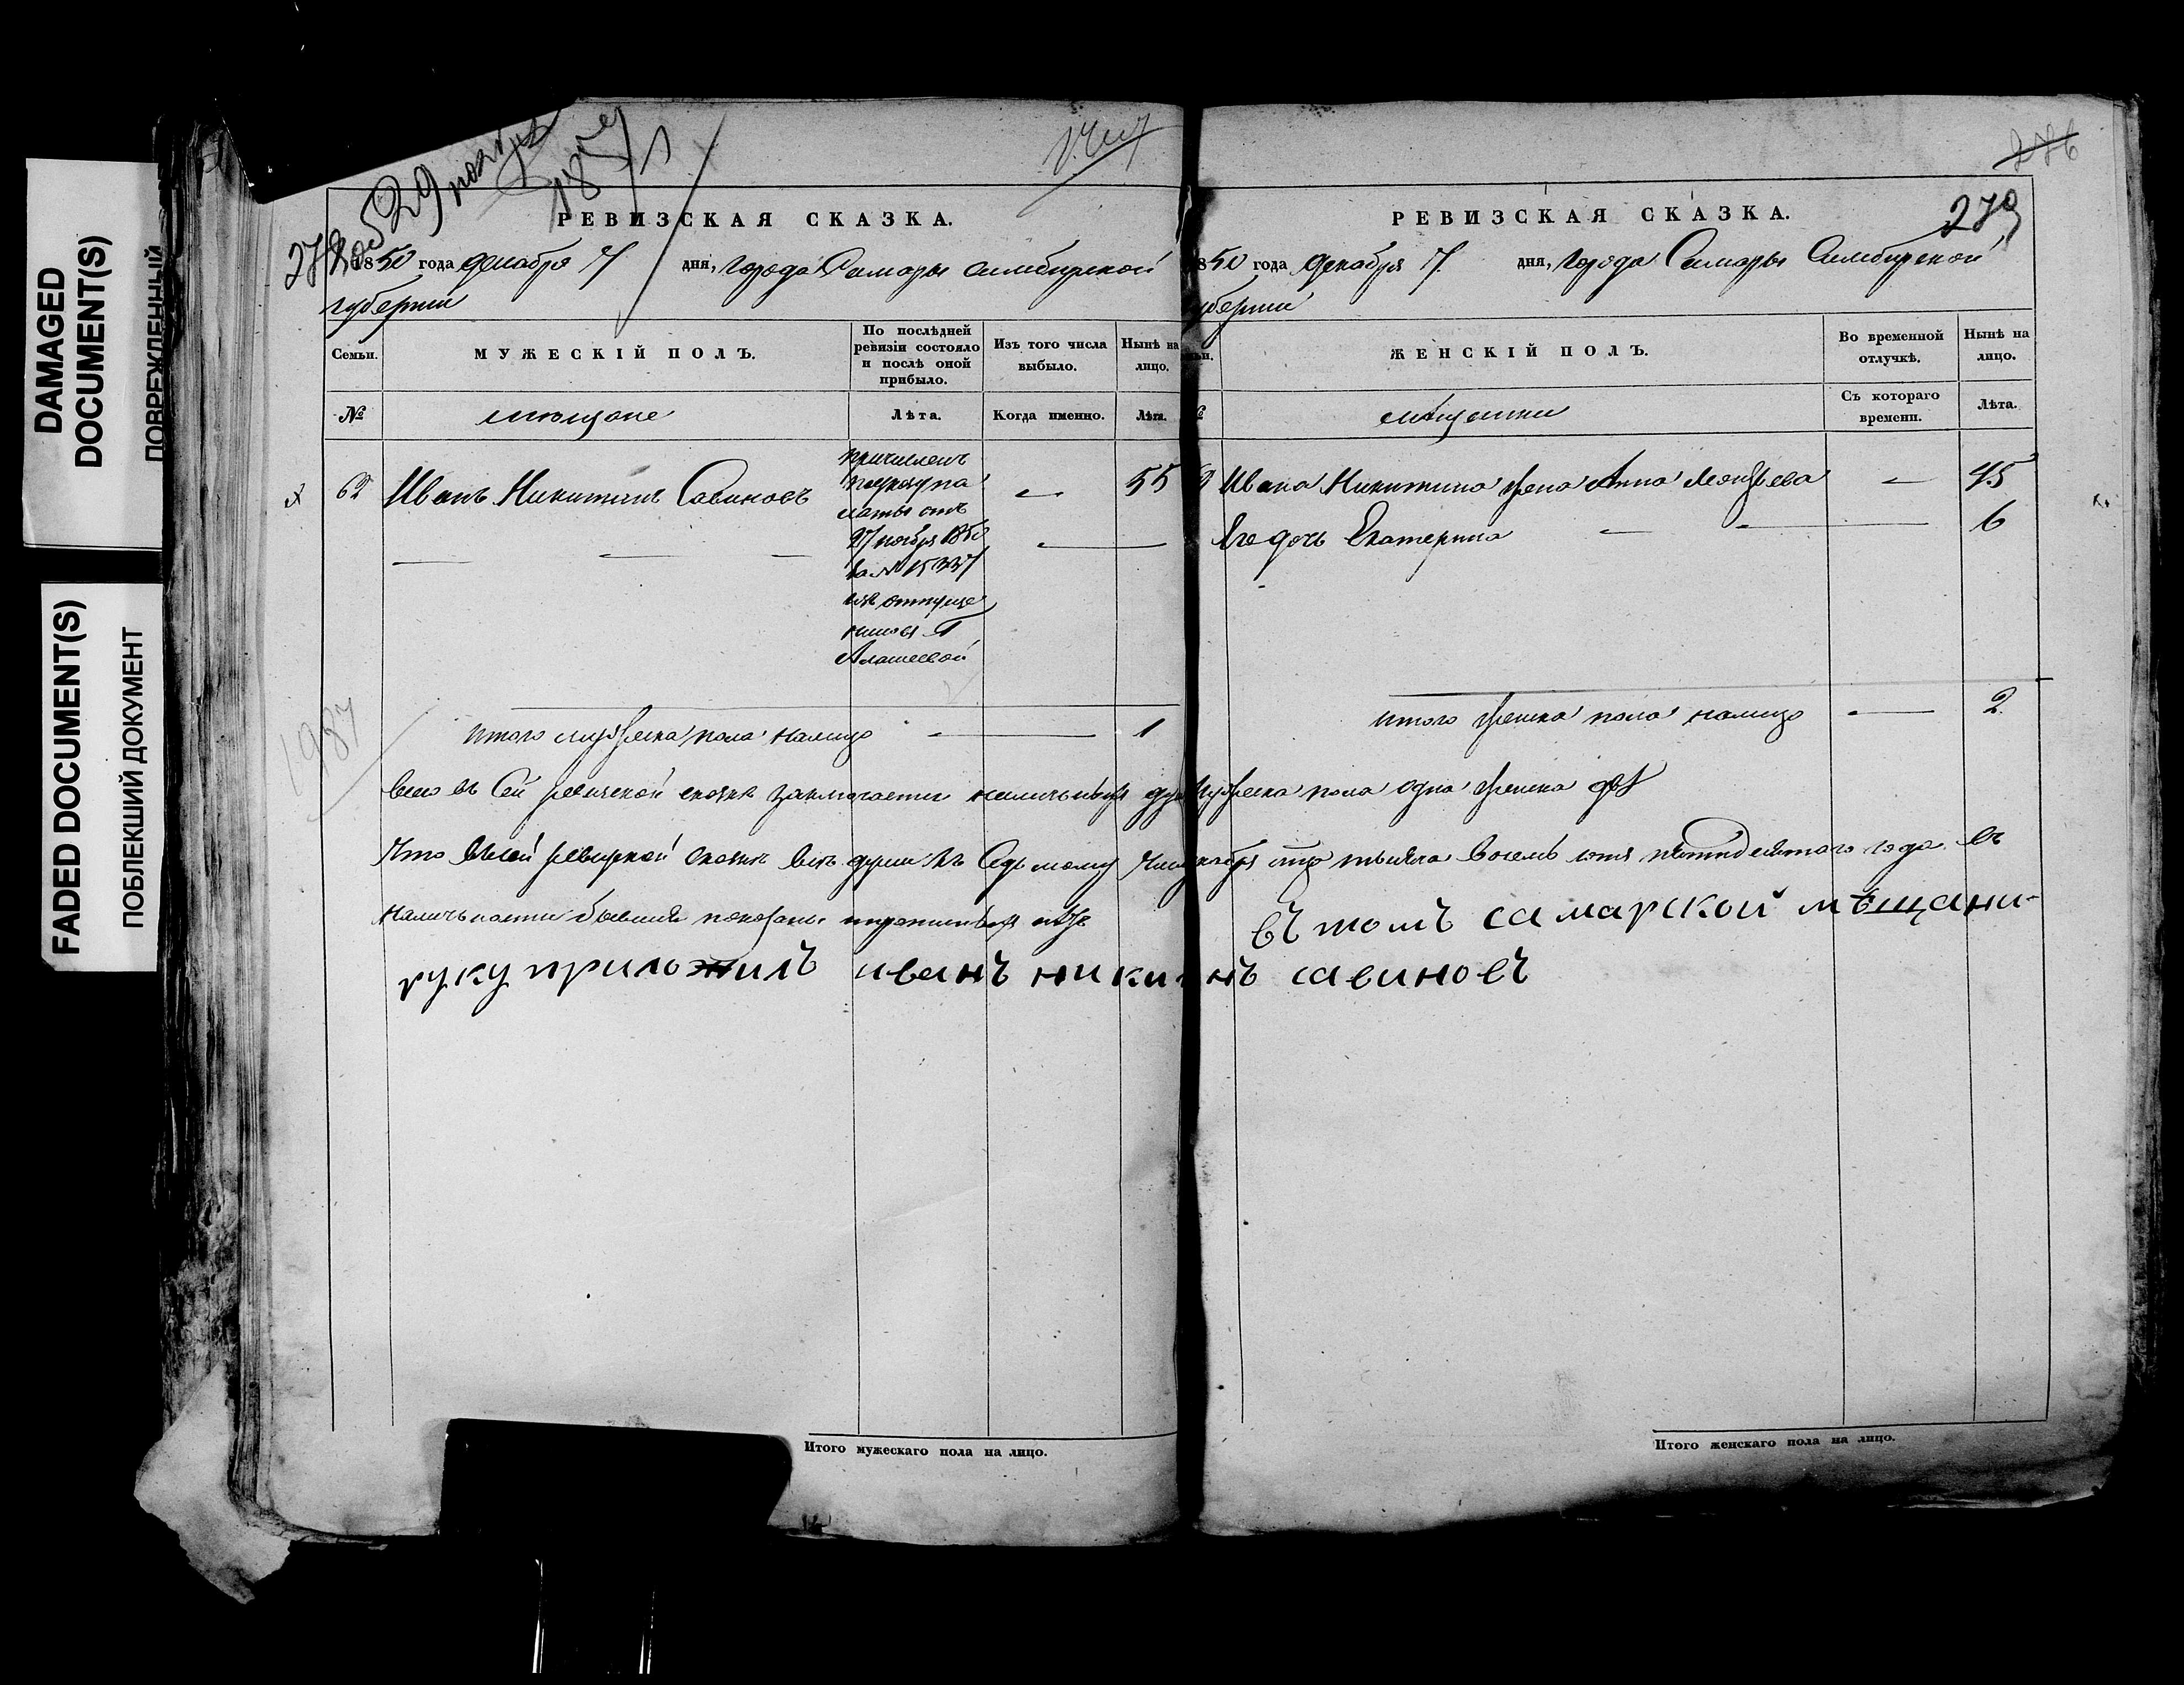 DAMAGED
DOCUMENT(S)
ПОВРЕЖДЕННЫЙ
FADED DOCUMENT(S)
ПОБЛЕКШИЙ ДОКУМЕНТ
29
278
РЕВИЗСКАЯ СКАЗКА.
1850 года декабря 7 дня, города Самары Симбирской
губернии
Семьи.
МУЖЕСКІЙ ПОЛЪ.
По послѣдней
ревизіи состояло
и послѣ оной
прибыло.
Изъ того числа
выбыло.
Нынѣ на
лицо.
№
мѣщане
Лѣта.
Когда именно.
Лѣта.
62 Иванъ Никитинъ Савиновъ
причислен
по указу па
латы отъ
27 ноября 1850
за № 15337
изъ отпуще
нниковъ Г
Алашеевой
55
Итого мужеска пола налицо 1
1987
276
279
РЕВИЗСКАЯ СКАЗКА.
850 года декабря 7. дня, города Самары Симбирской
губернии
ЖЕНСКІЙ ПОЛЪ.
Во временной
отлучкѣ.
Нынѣ на
лицо.
мѣщанки
Съ котораго
времени.
Лѣта.
Ивана Никитина жена Анна Леонтьева 45
Его дочь Екатерина 6
итого женска пола налицо 2.
всего въ сей ревизской сказкѣ заключается наличныхъ душъ мужеска пола одна женска двѣ
Что въ сей ревизской сказкѣ всѣ души къ седьмому числу декабря тысяча восемь сотъ пятидесятаго года въ
наличности бывшия показаны
въ томъ самарской мѣщани-
руку приложилъ иванъ никитинъ савиновъ
Итого мужескаго пола на лицо.
Итого женскаго пола на лицо.